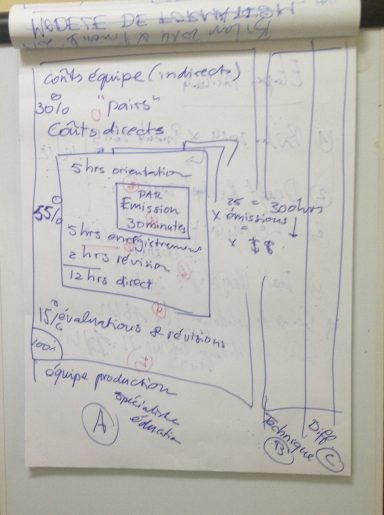 MODÈLE DE
coûts équipe (indirects)
30% "pairs"
Coûts directs
5 hrs orientation
PAR
Émission
30 minutes
5 hrs enregistrement
2 hrs révision
12 hrs direct
55%
25 = 300 hrs
x émissions
=
x $$
15% évaluations & révisions
100%
équipe production
spécialiste
éducation
A
Technique
B
Diff
C